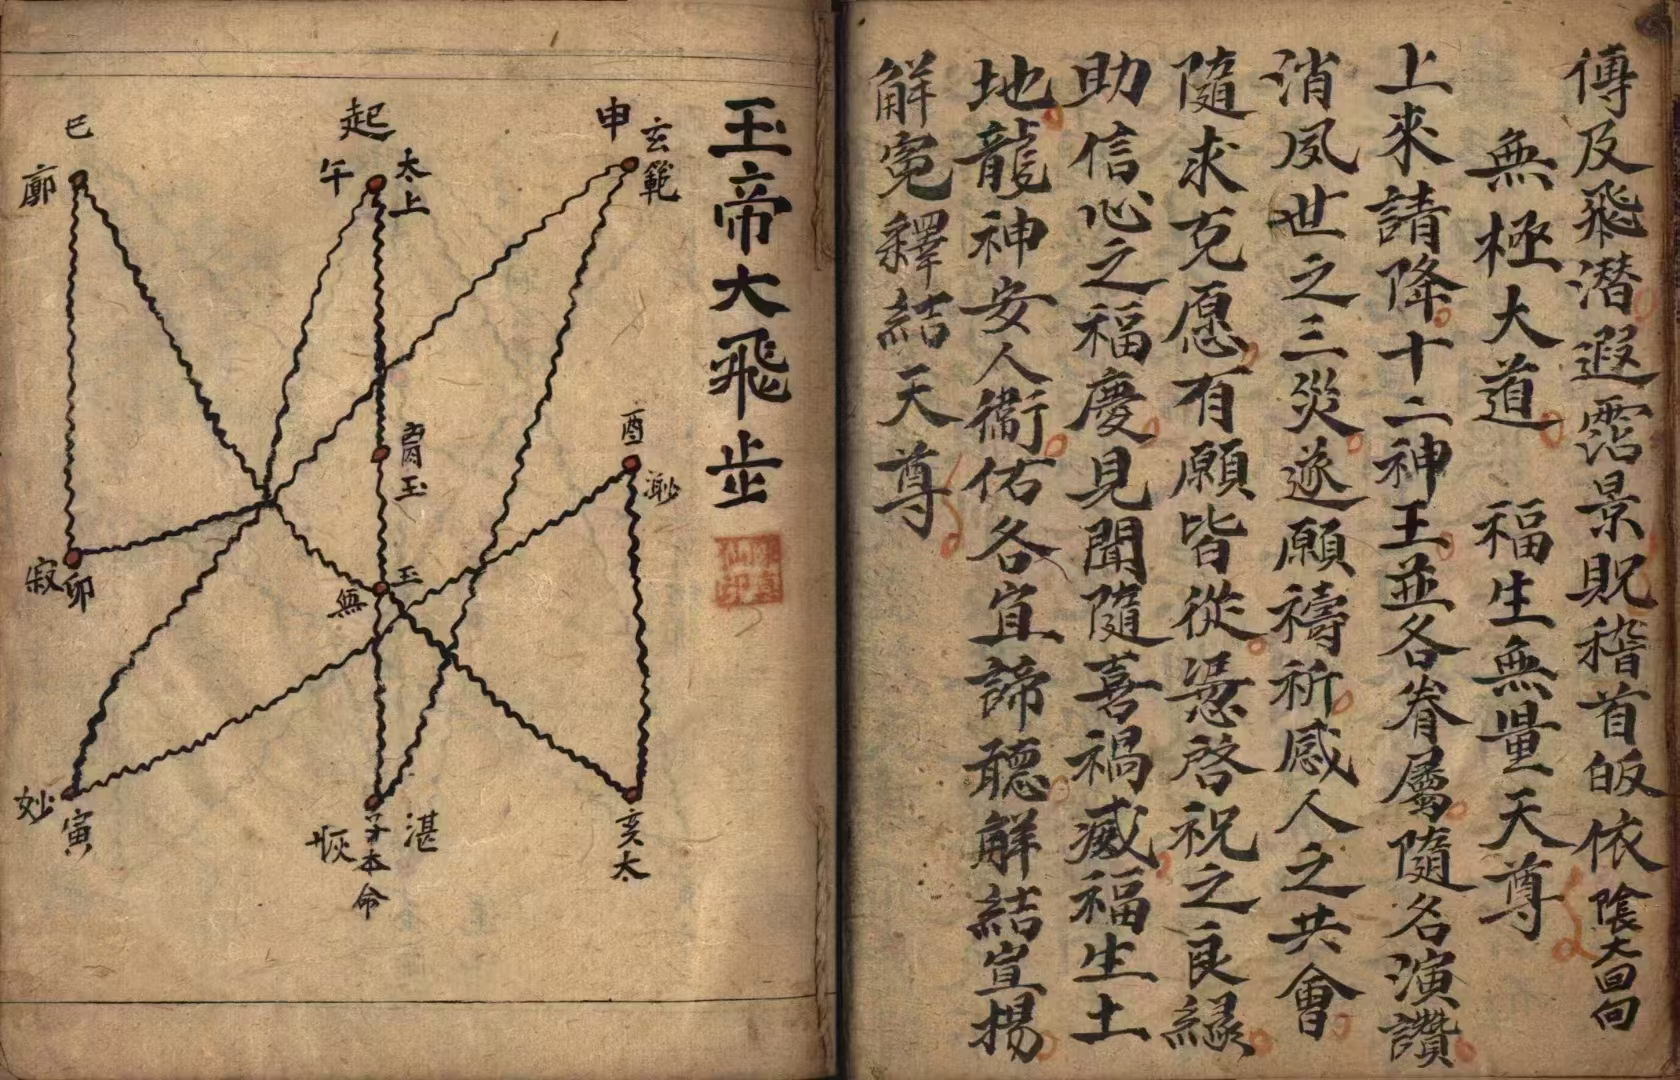 傳及飛潛遐霑景貺稽首皈依陰大回向
無極大道 福生無量天尊
上來請降十二神王並各眷屬隨名演讚
消夙世之三災遂願禱祈感人之共會
隨求克愿有願皆從憑啓祝之良緣
助信心之福慶見聞隨喜禍滅福生土
地龍神安人衛佑各宜諦聽解結宣揚
解寃釋結天尊
玉帝大飛步
申
玄範
酉
渺
亥太
起
午
太上
玉
玉
無
子本命
湛
巳
廓
寂
卯
妙
寅